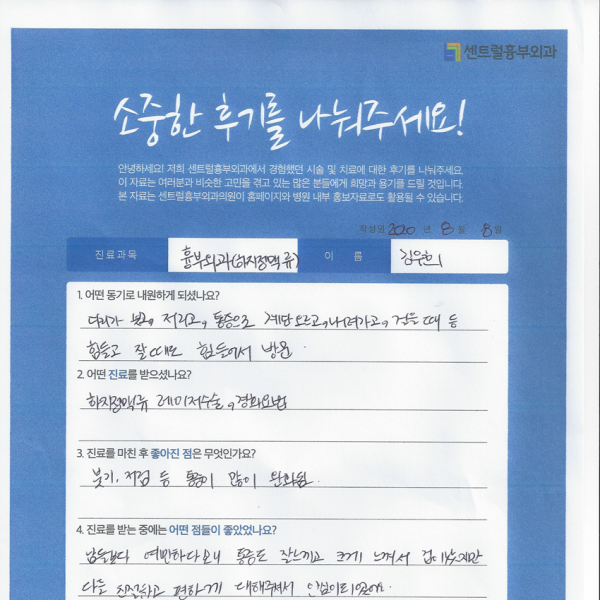 센트럴흉부외과
소중한 후기를 나눠주세요!
안녕하세요! 저희 센트럴흉부외과에서 경험했던 시술 및 치료에 대한 후기를 나눠주세요.
이 자료는 여러분과 비슷한 고민을 겪고 있는 많은 분들에게 희망과 용기를 드릴 것입니다.
본 자료는 센트럴흉부외과의원이 홈페이지와 병원 내부 홍보자료로도 활용될 수 있습니다.
작성일 2020 년 8 월 8 일
진료과목 흉부외과(하지정맥류) 이 름 김우희
1. 어떤 동기로 내원하게 되셨나요?
다리가 붓고, 저리고, 통증으로 계단오르고, 내려가고, 걸을 때 등
힘들고 잘때도 힘들어서 방문.
2. 어떤 진료를 받으셨나요?
하지정맥류 레이저수술, 경화요법
3. 진료를 마친 후 좋아진 점은 무엇인가요?
붓기, 저림 등 통증이 많이 완화됨.
4. 진료를 받는 중에는 어떤 점들이 좋았었나요?
남들보다 예민하다보니 통증도 잘느끼고 크게 느껴서 겁이났지만
다들 친절하고 편하게 대해주셔서 안심이되었어요.